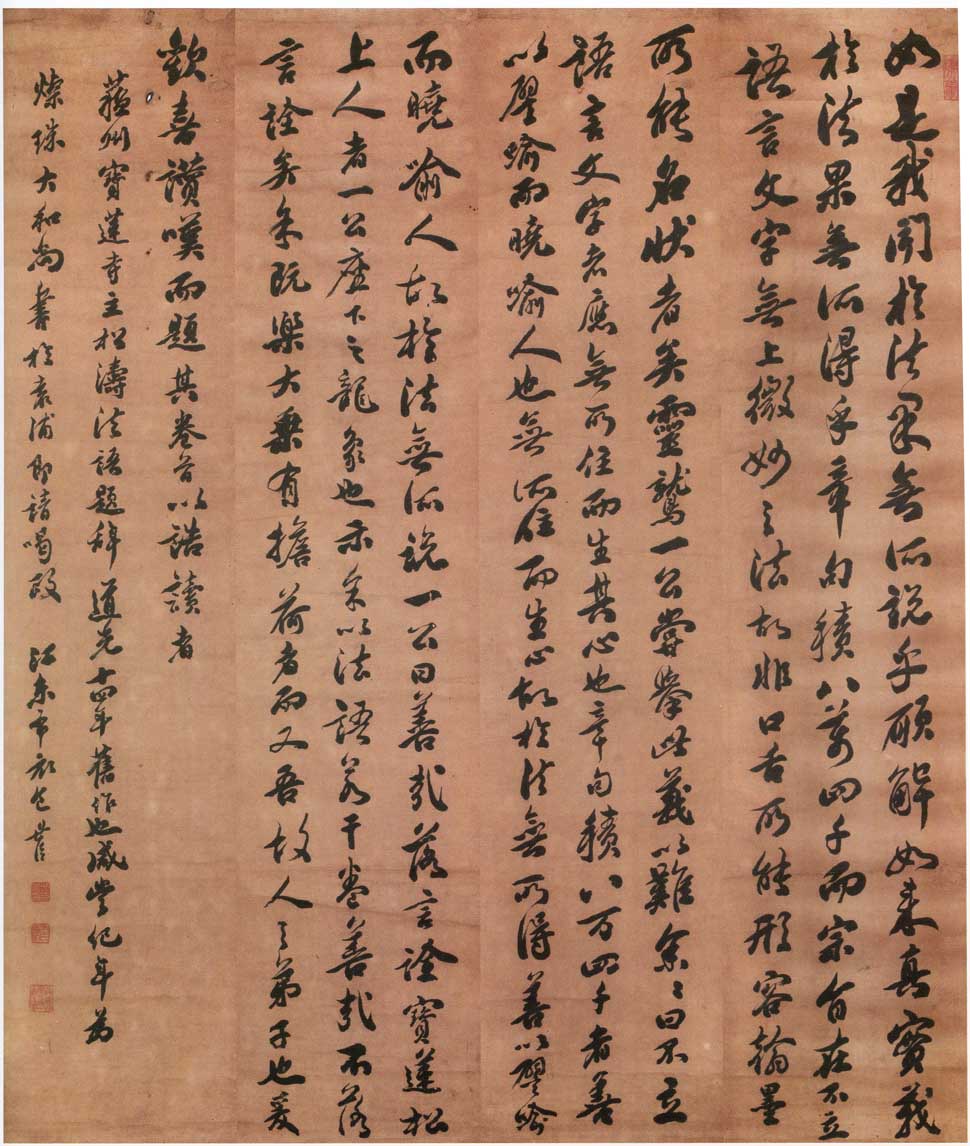 如是我聞於法果無所說乎願解如來真實義
於法果無所得乎章句積八萬四千而宗旨在不立
語言文字無上微妙之法故非口舌所能形容翰墨
所能名狀者矣靈鷲一公嘗舉此義以難余々曰不立
語言文字者應無所住而生其心也章句積八万四千者善
以譬喻而曉喻人也無所住而生心故於法無所得善以譬喻
而曉喻人故於法無所說一公曰善哉落言詮寶蓮松
上人者一公座下之龍象也示余以法語若干卷善哉不落
言詮矣余既樂大乘有擔荷者而又吾故人之弟子也爰
歡喜讚嘆而題其卷首以諗讀者
蘇州寶蓮寺主松濤法語題辭道光十四年舊作也咸豐紀年為
燦珠大和尚書於袁浦即請喝政 江東布衣包世臣